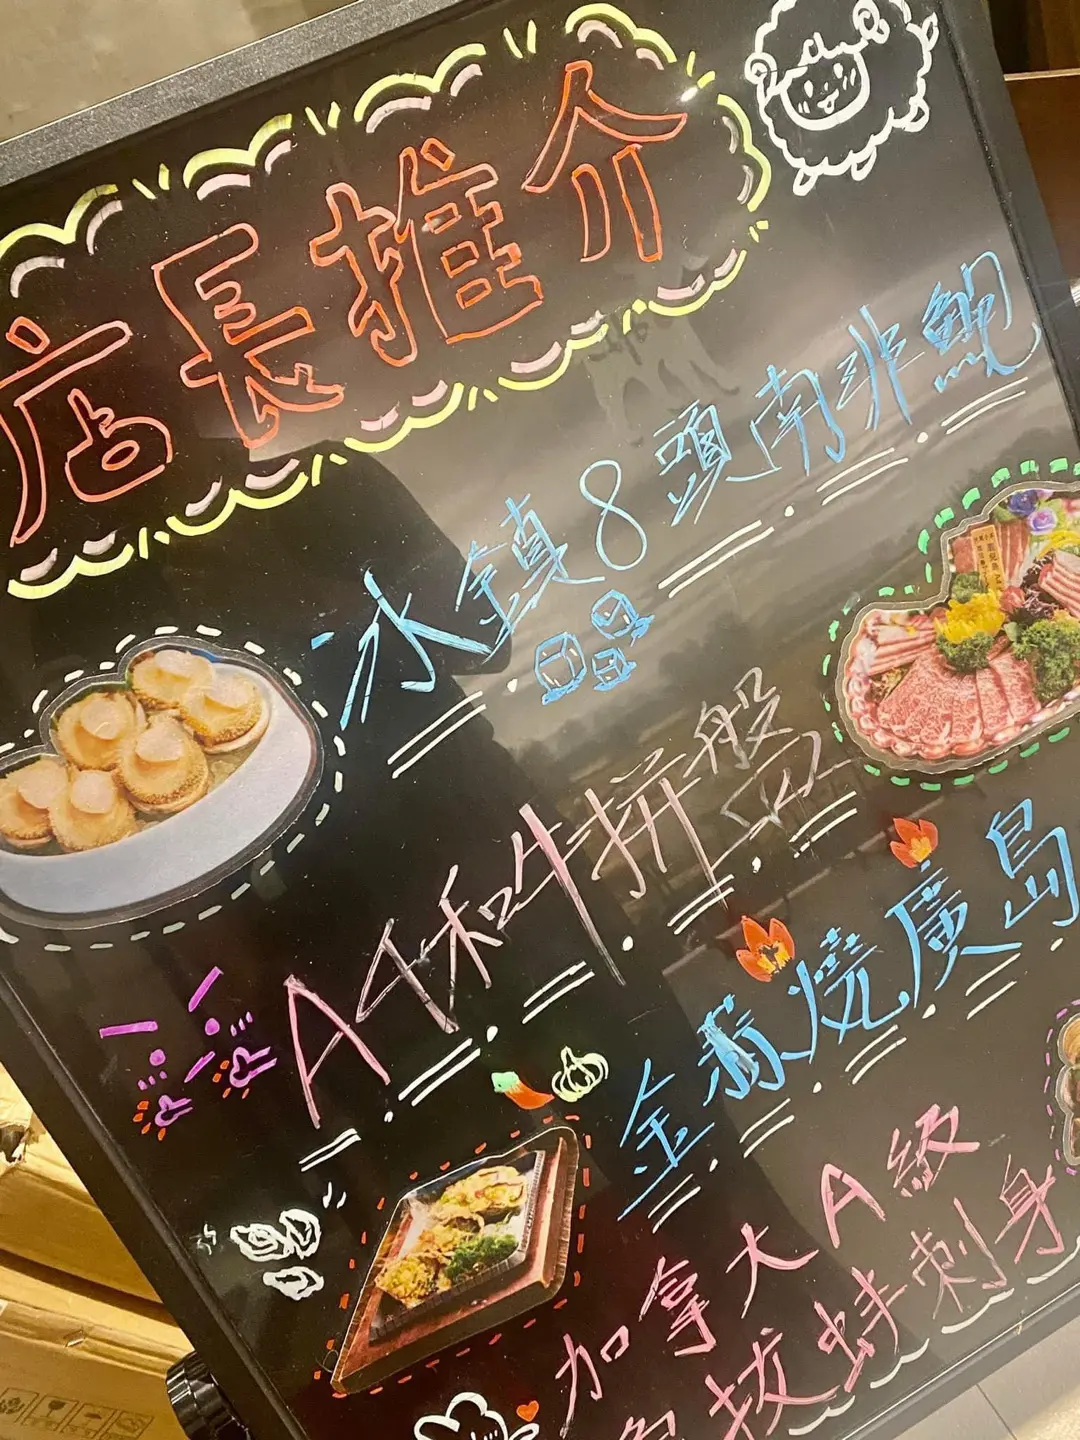 店長推介
冰鎮8頭南非鮑
A4和牛拼盤
金蒜燒廣島
加拿大A級
象拔蚌刺身